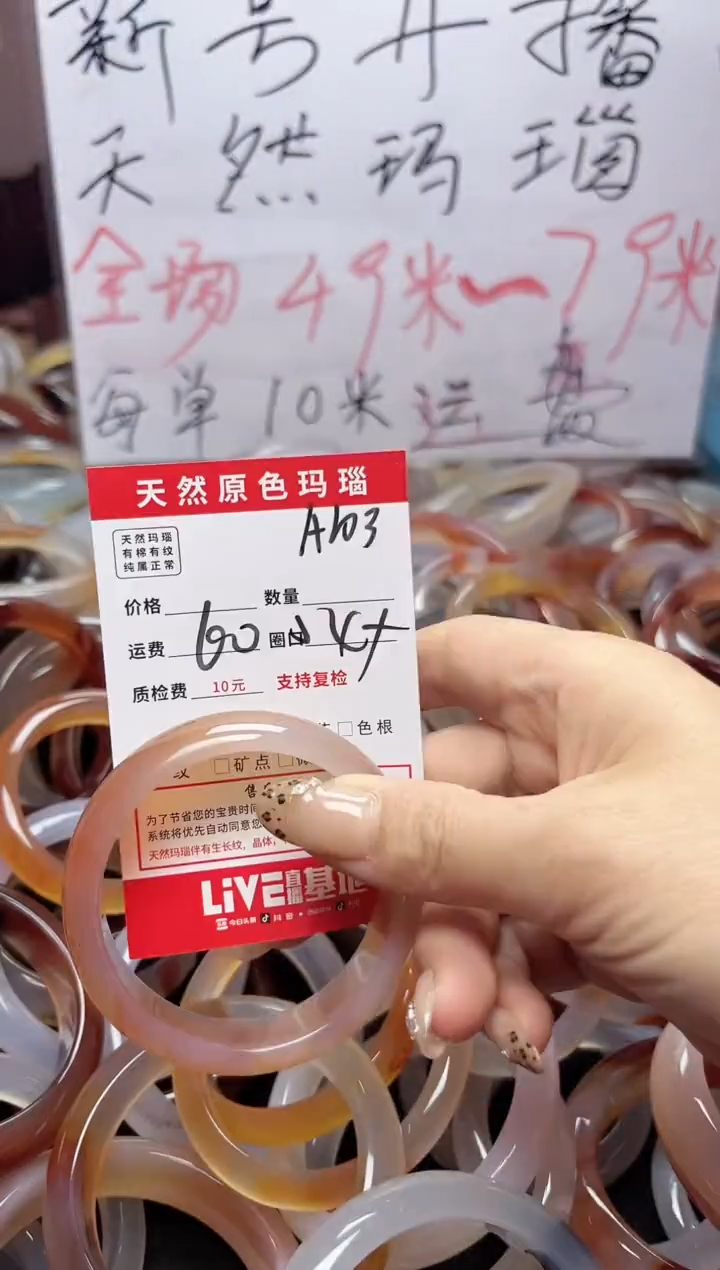 新号开播
天然玛瑙
全场49米~79米
每单10米运费
天然原色玛瑙
天然玛瑙
有棉有纹
纯属正常
价格 数量
运费 60 圈口
质检费 10元 支持复检
色根
矿点
为了节省您的宝贵时间
系统将优先自动同意您
天然玛瑙伴有生长纹，晶体，
LiVE直播基地
今日头条 抖音